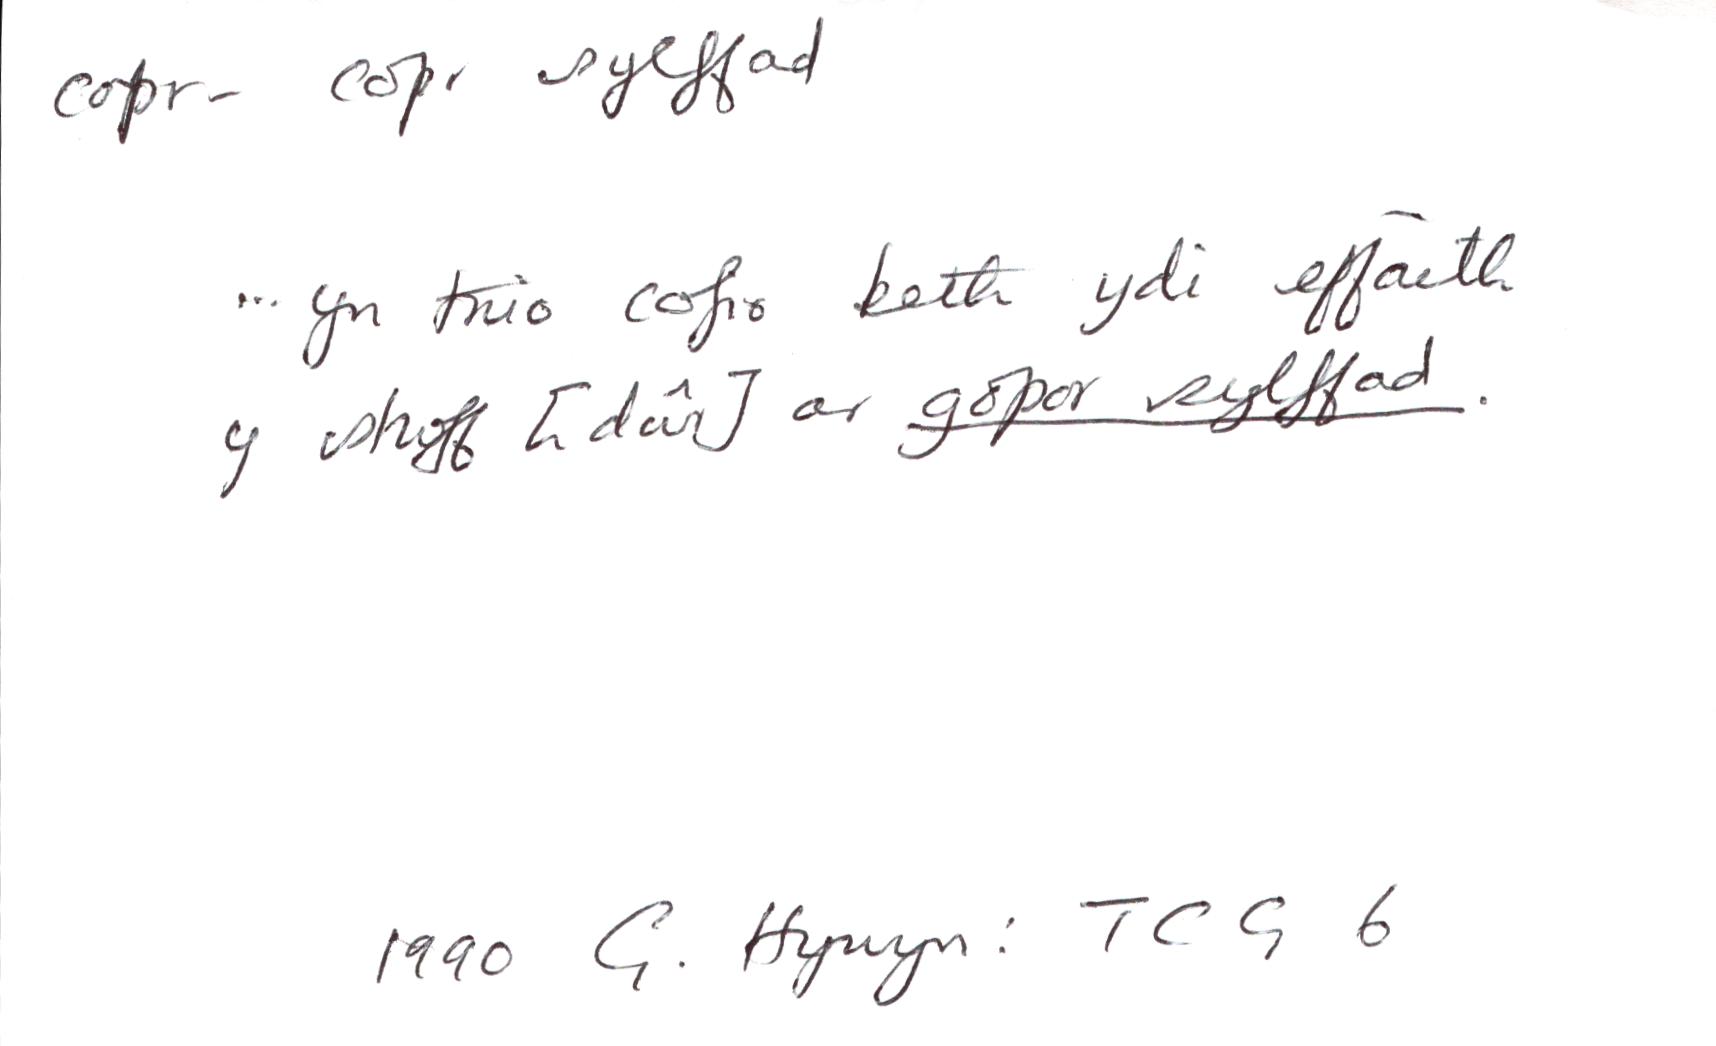 copr - copr sylffad
... yn trio cofio beth ydi effaith
y stwff [dŵr] ar gopor sylffad.
1990 G. Hywyn: TCG 6